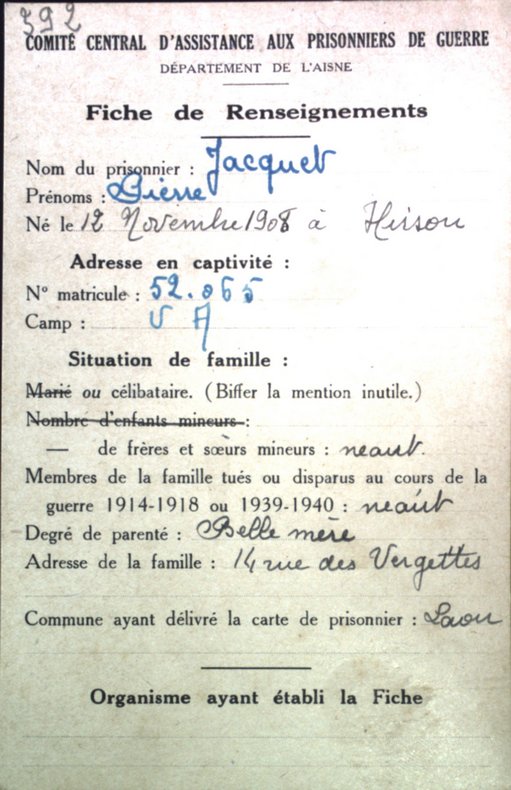 392
COMITÉ CENTRAL D'ASSISTANCE AUX PRISONNIERS DE GUERRE
DÉPARTEMENT DE L'AISNE
Fiche de Renseignements
Nom du prisonnier : Jacquet
Prénoms : Pierre
Né le 12 Novembre 1908 à Hirson
Adresse en captivité :
N° matricule : 52.065
Camp : V A
Situation de famille :
Marié ou célibataire. (Biffer la mention inutile.)
Nombre d'enfants mineurs :
— de frères et sœurs mineurs : neant.
Membres de la famille tués ou disparus au cours de la
guerre 1914-1918 ou 1939-1940 : neant
Degré de parenté : Belle mère
Adresse de la famille : 14 rue des Vergettes
Commune ayant délivré la carte de prisonnier : Laon
Organisme ayant établi la Fiche